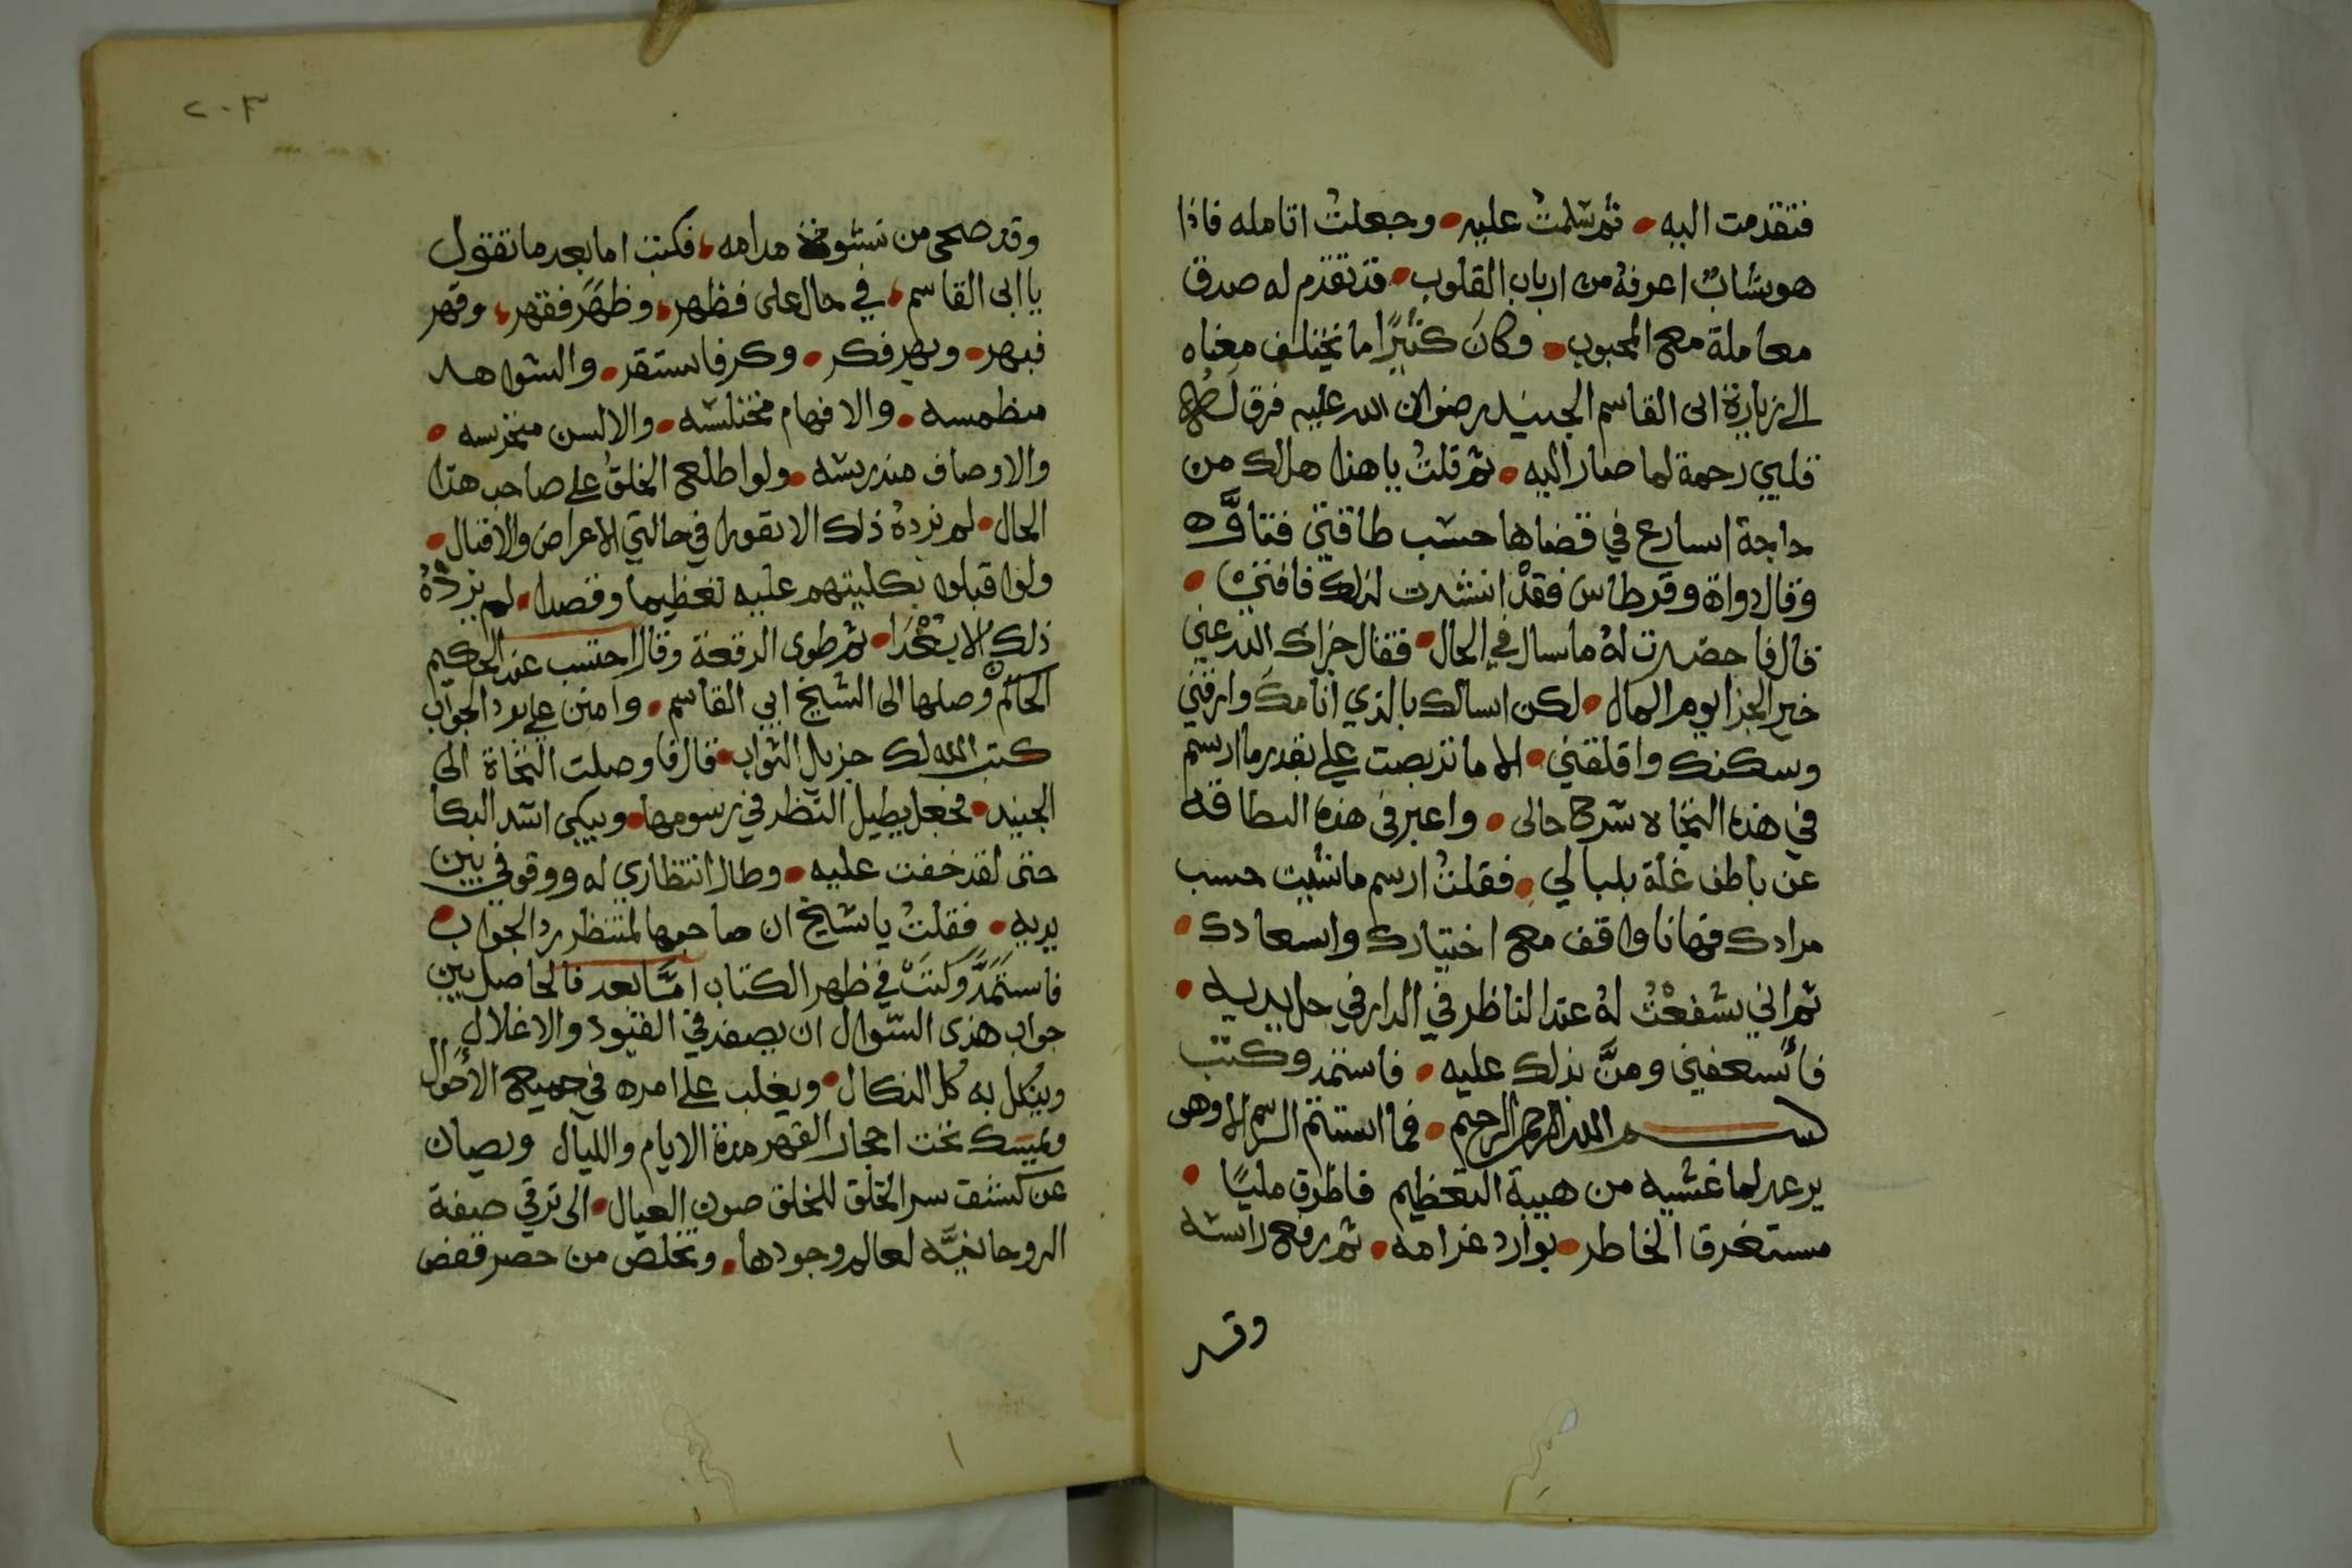 فتقدمت اليه • ثم سلمتُ عليه • وجعلتُ اتامله فاذا
هو شابٌ اعرفهُ من ارباب القلوب • قد تقدم له صدق
معاملة مع المحبوب • وكانَ كثيرًا ما يختلف معناه
الى زيارة ابى القاسم الجنيد رضوان الله عليه فرق لهُ
قلبي رحمة لما صار اليه • ثم قلتُ يا هذا هل لك من
حاجة اسارع في قضاها حسب طاقتي فتاوَّه
وقال دواة وقرطاس فقدْ انتشرت لذلك
قال فاحضرت لهُ ما سال في الحال • فقال جزاك الله عني
خير الجزا يوم المال • لكن اسالك بالذي انامك وارقني
وسكنك واقلقني • الا ما تربصت علي بقدر ما ارسم
في هذه شرح حالى • واعبر فى هذه البطاقه
عن باطن غلة بلبالي • فقلتُ ارسم ما شيت حسب
مرادك فهانا واقف مع اختيارك واسعادك •
ثم اني شفعْتُ لهُ عند الناظر في الدار في حل يديه •
فأسعفني ومنَّ بذلك عليه • فاستمد وكتب
بسم الله الرحمن الرحيم • فما استتم الرسم الا وهو
يرعد لما غشيه من هيبة التعظيم فاطرق مليًا •
مستغرق الخاطر • بوارد غرامه • ثم رفع راسه
وقد
٢٠٣
وقد صحى من نشوة مدامه • فكتب اما بعد ما تقول
يا ابى القاسم • في حال على فظهر • وظهَرَ فقهر • وقهر
فبهر • وبهر فكر • وكر فاستقر • والشواهد
منطمسه • والافهام مختلسه • والالسن منخرسه •
والاوصاف مندرسه • ولو اطلع الخلقُ على صاحب هذا
الحال • لم يزدهُ ذلك الا نفورا في حالتي الاعراض والاقبال •
ولو اقبلوا بكليتهم عليه تعظيما وقصدا • لم يزدْهُ
ذلك الا بُعْدَا • ثم طوى الرقعة وقال احتسب عند الحكيم
الحاكم وصلها الى الشيخ ابي القاسم • وامنن علي برد الجواب
كتب الله لك جزيل الثواب • قال فاوصلت الى
الجنيد • فجعل يطيل النظر في رسومها • ويبكي اشد البكا
حتى لقد خفت عليه • وطال انتظاري له ووقوفي بين
يديه • فقلتُ يا شيخ ان صاحبها لمنتظر رد الجواب •
فاستمَدَّ وكتبَ في ظهر الكتاب امَّا بعد فالحاصل بين
جواب هذى السوال ان يصفد في القيود والاغلال
وينكل به كل النكال • ويغلب على امره في جميع الأحوال
ويمسك تحت احجار القهر مدة الايام والليال ويصان
عن كشف سر الخلق للخلق صون العيال • الى ترقي صفة
الروحانيَّه لعالم وجودها • وتخلص من حصر قفص